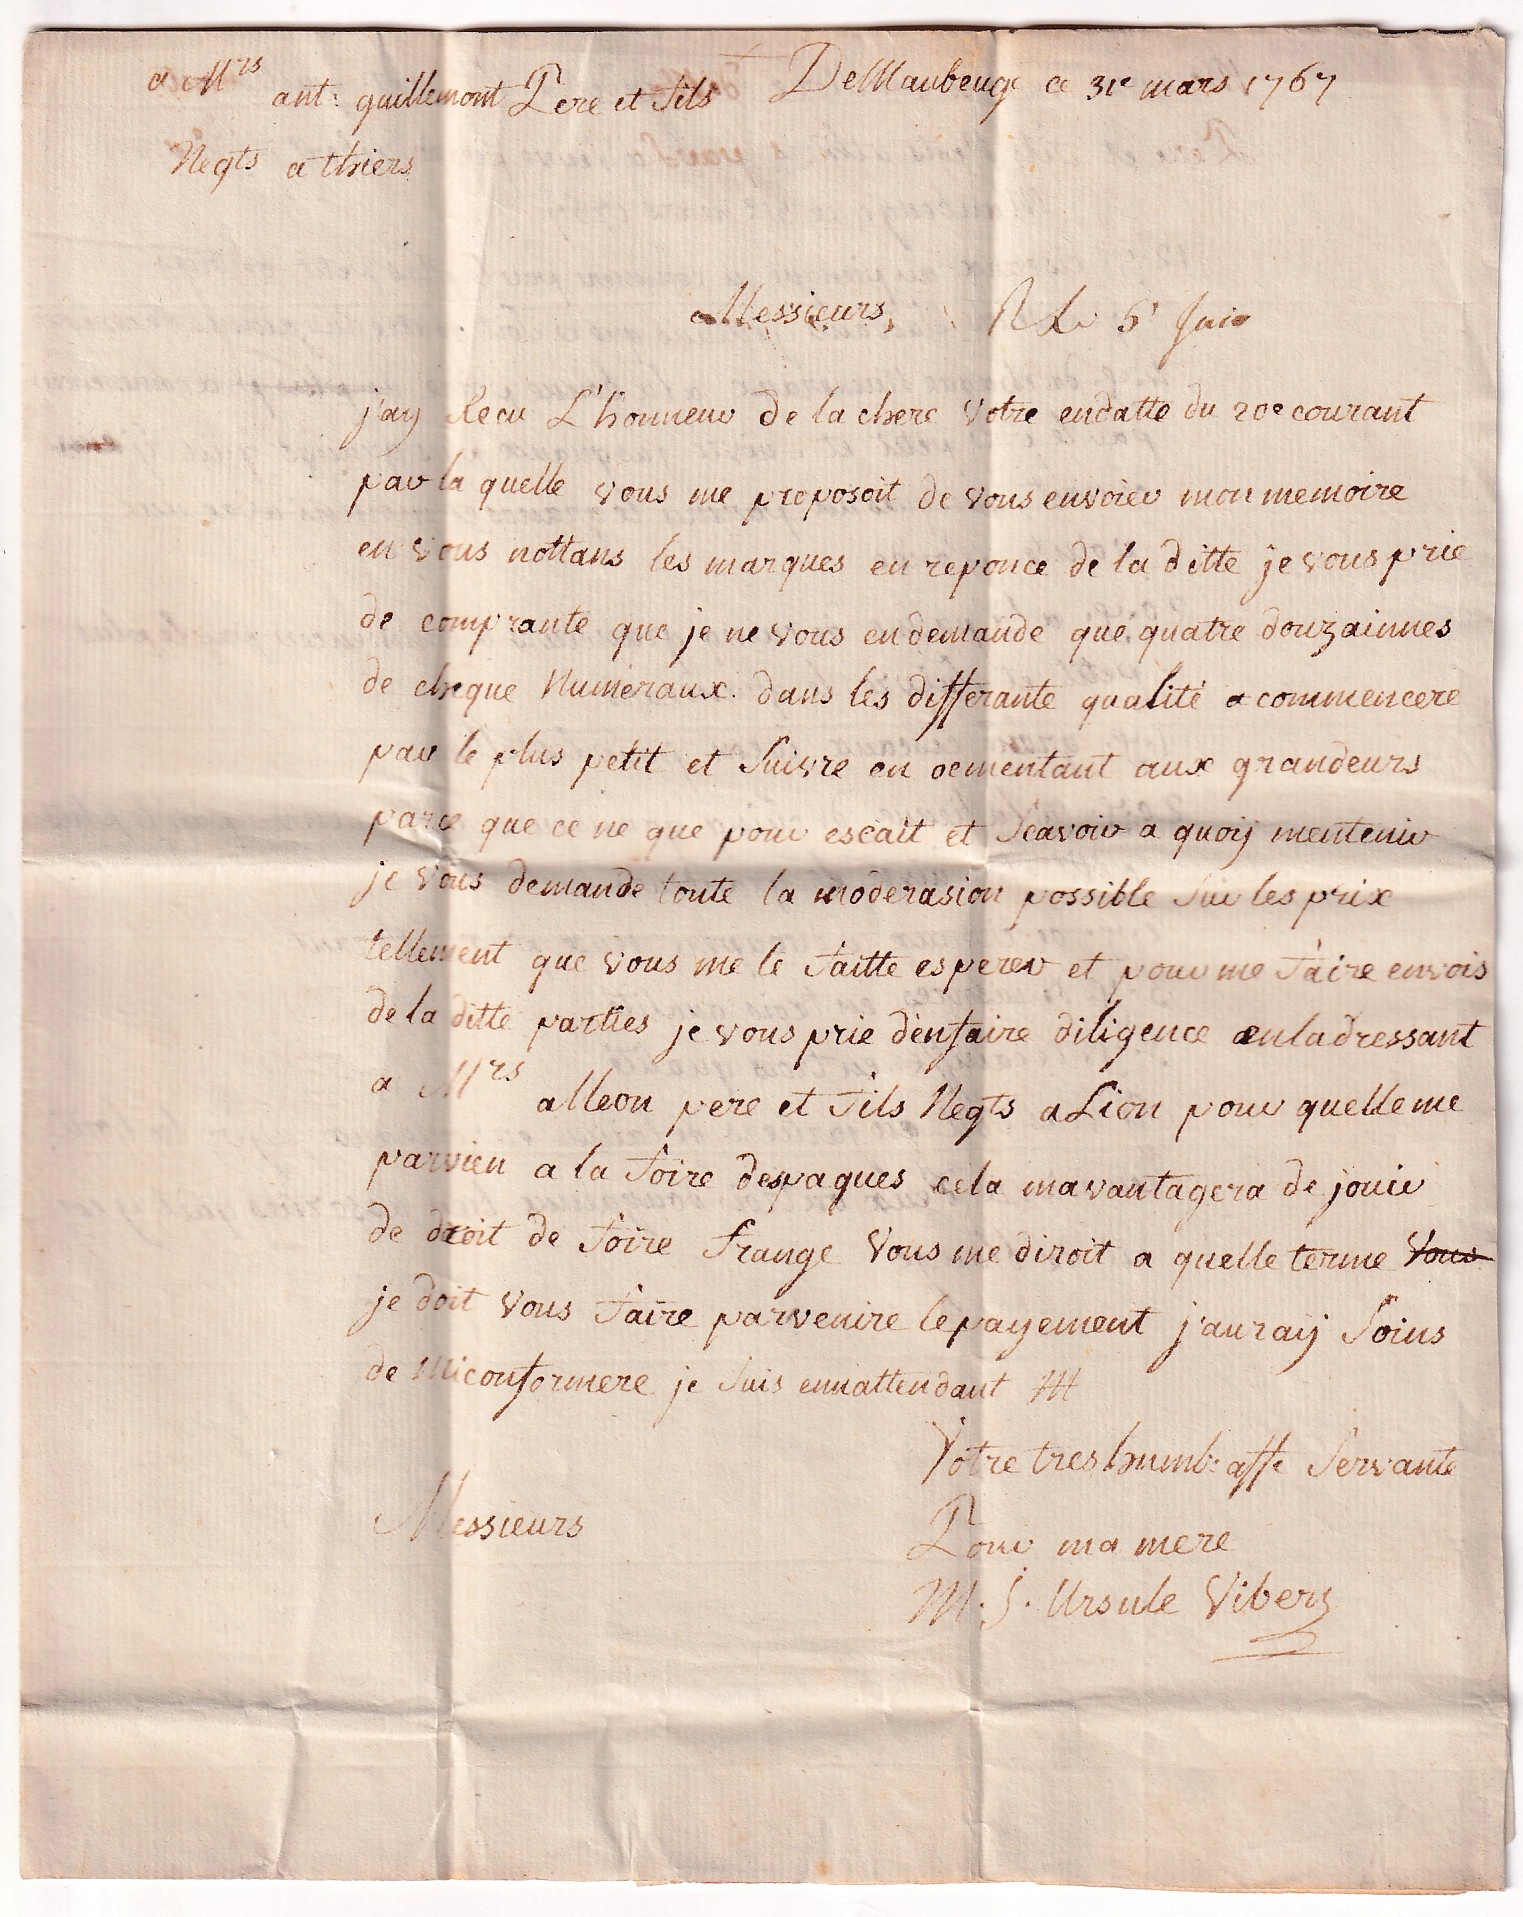 a Mrs ant: guillemont Pere et fils
DeMaubeuge ce 31e mars 1767
Negts a thiers
Messieurs,
R Le 6e Juin
j'ay Recu L'honneur de la chere votre endatte du 20e courant
par la quelle vous me proposoit de vous envoier mon memoire
en vous nottans les marques en reponce de la ditte je vous prie
de comprante que je ne vous en demande que quatre douzainnes
de cheque Numeraux dans les differante qualité a commencere
par le plus petit et suivre en oementant aux grandeurs
parce que ce ne que pour escait et scavoir a quoij mentenir
je vous demande toute la moderasion possible sur les prix
tellement que vous me le faitte esperer et pour me faire envois
de la ditte parties je vous prie d'enfaire diligence enladressant
a Mrs alleon pere et fils Negts a Lion pour quelle me
parvien a la foire despaques cela mavantagera de jouir
de droit de foire frange vous me diroit a quelle terme vous
je doit vous faire parvenire le payement j'auraij soins
de miconformere je suis ennattendant
Votre tres humb: affe servante
Messieurs
Pour ma mere
M. J. Ursule Vibery